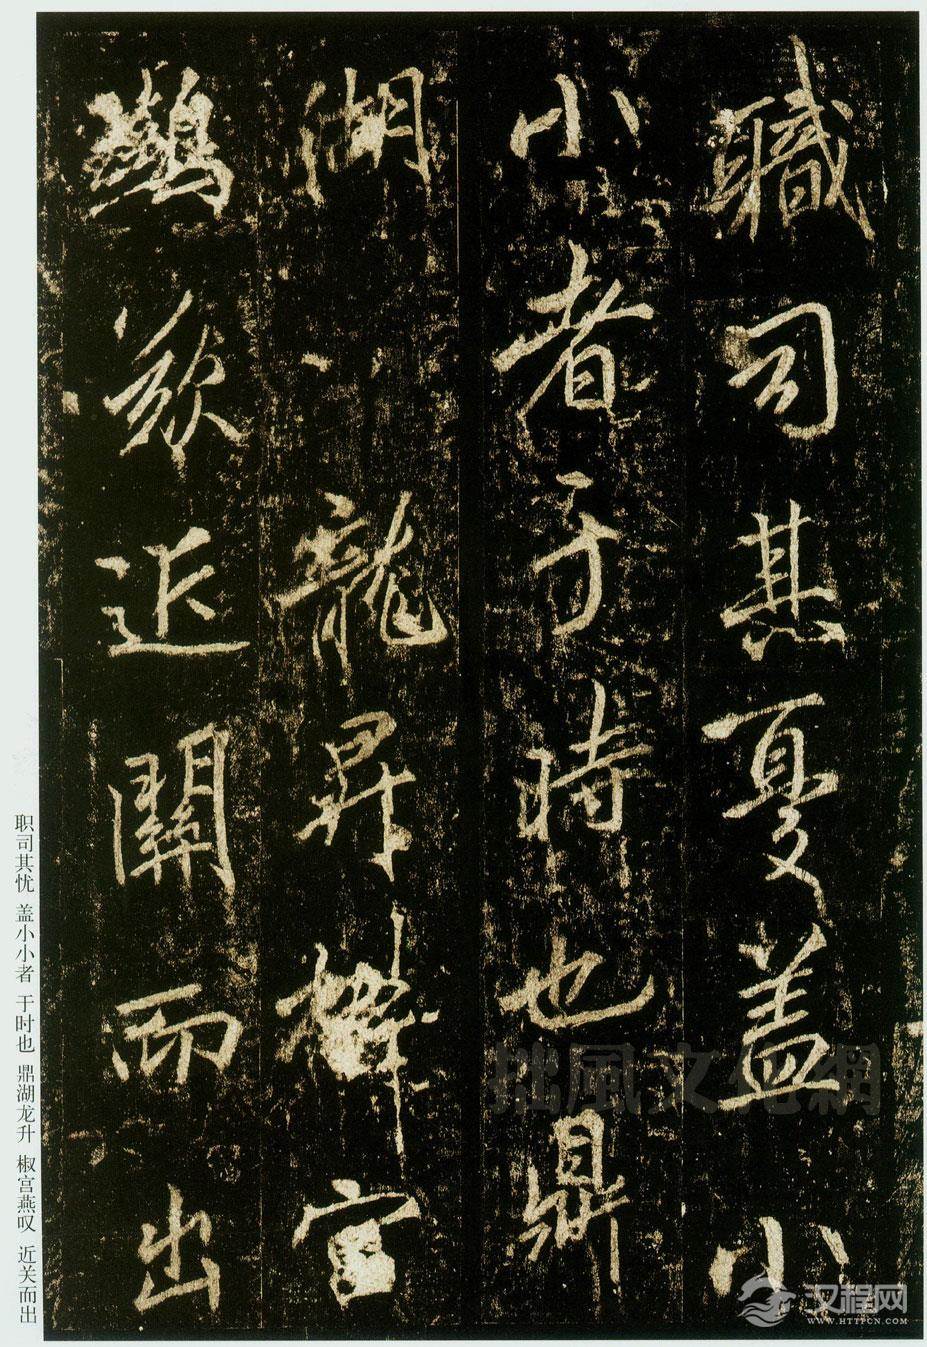 職司其憂蓋小
小者于時也鼎
湖龍昇宮
鷰歎近關而出
职司其忧 盖小小者 于时也 鼎湖龙升 椒宫燕叹 近关而出
拙風文化網
汉程网
WWW.HTTPCN.COM